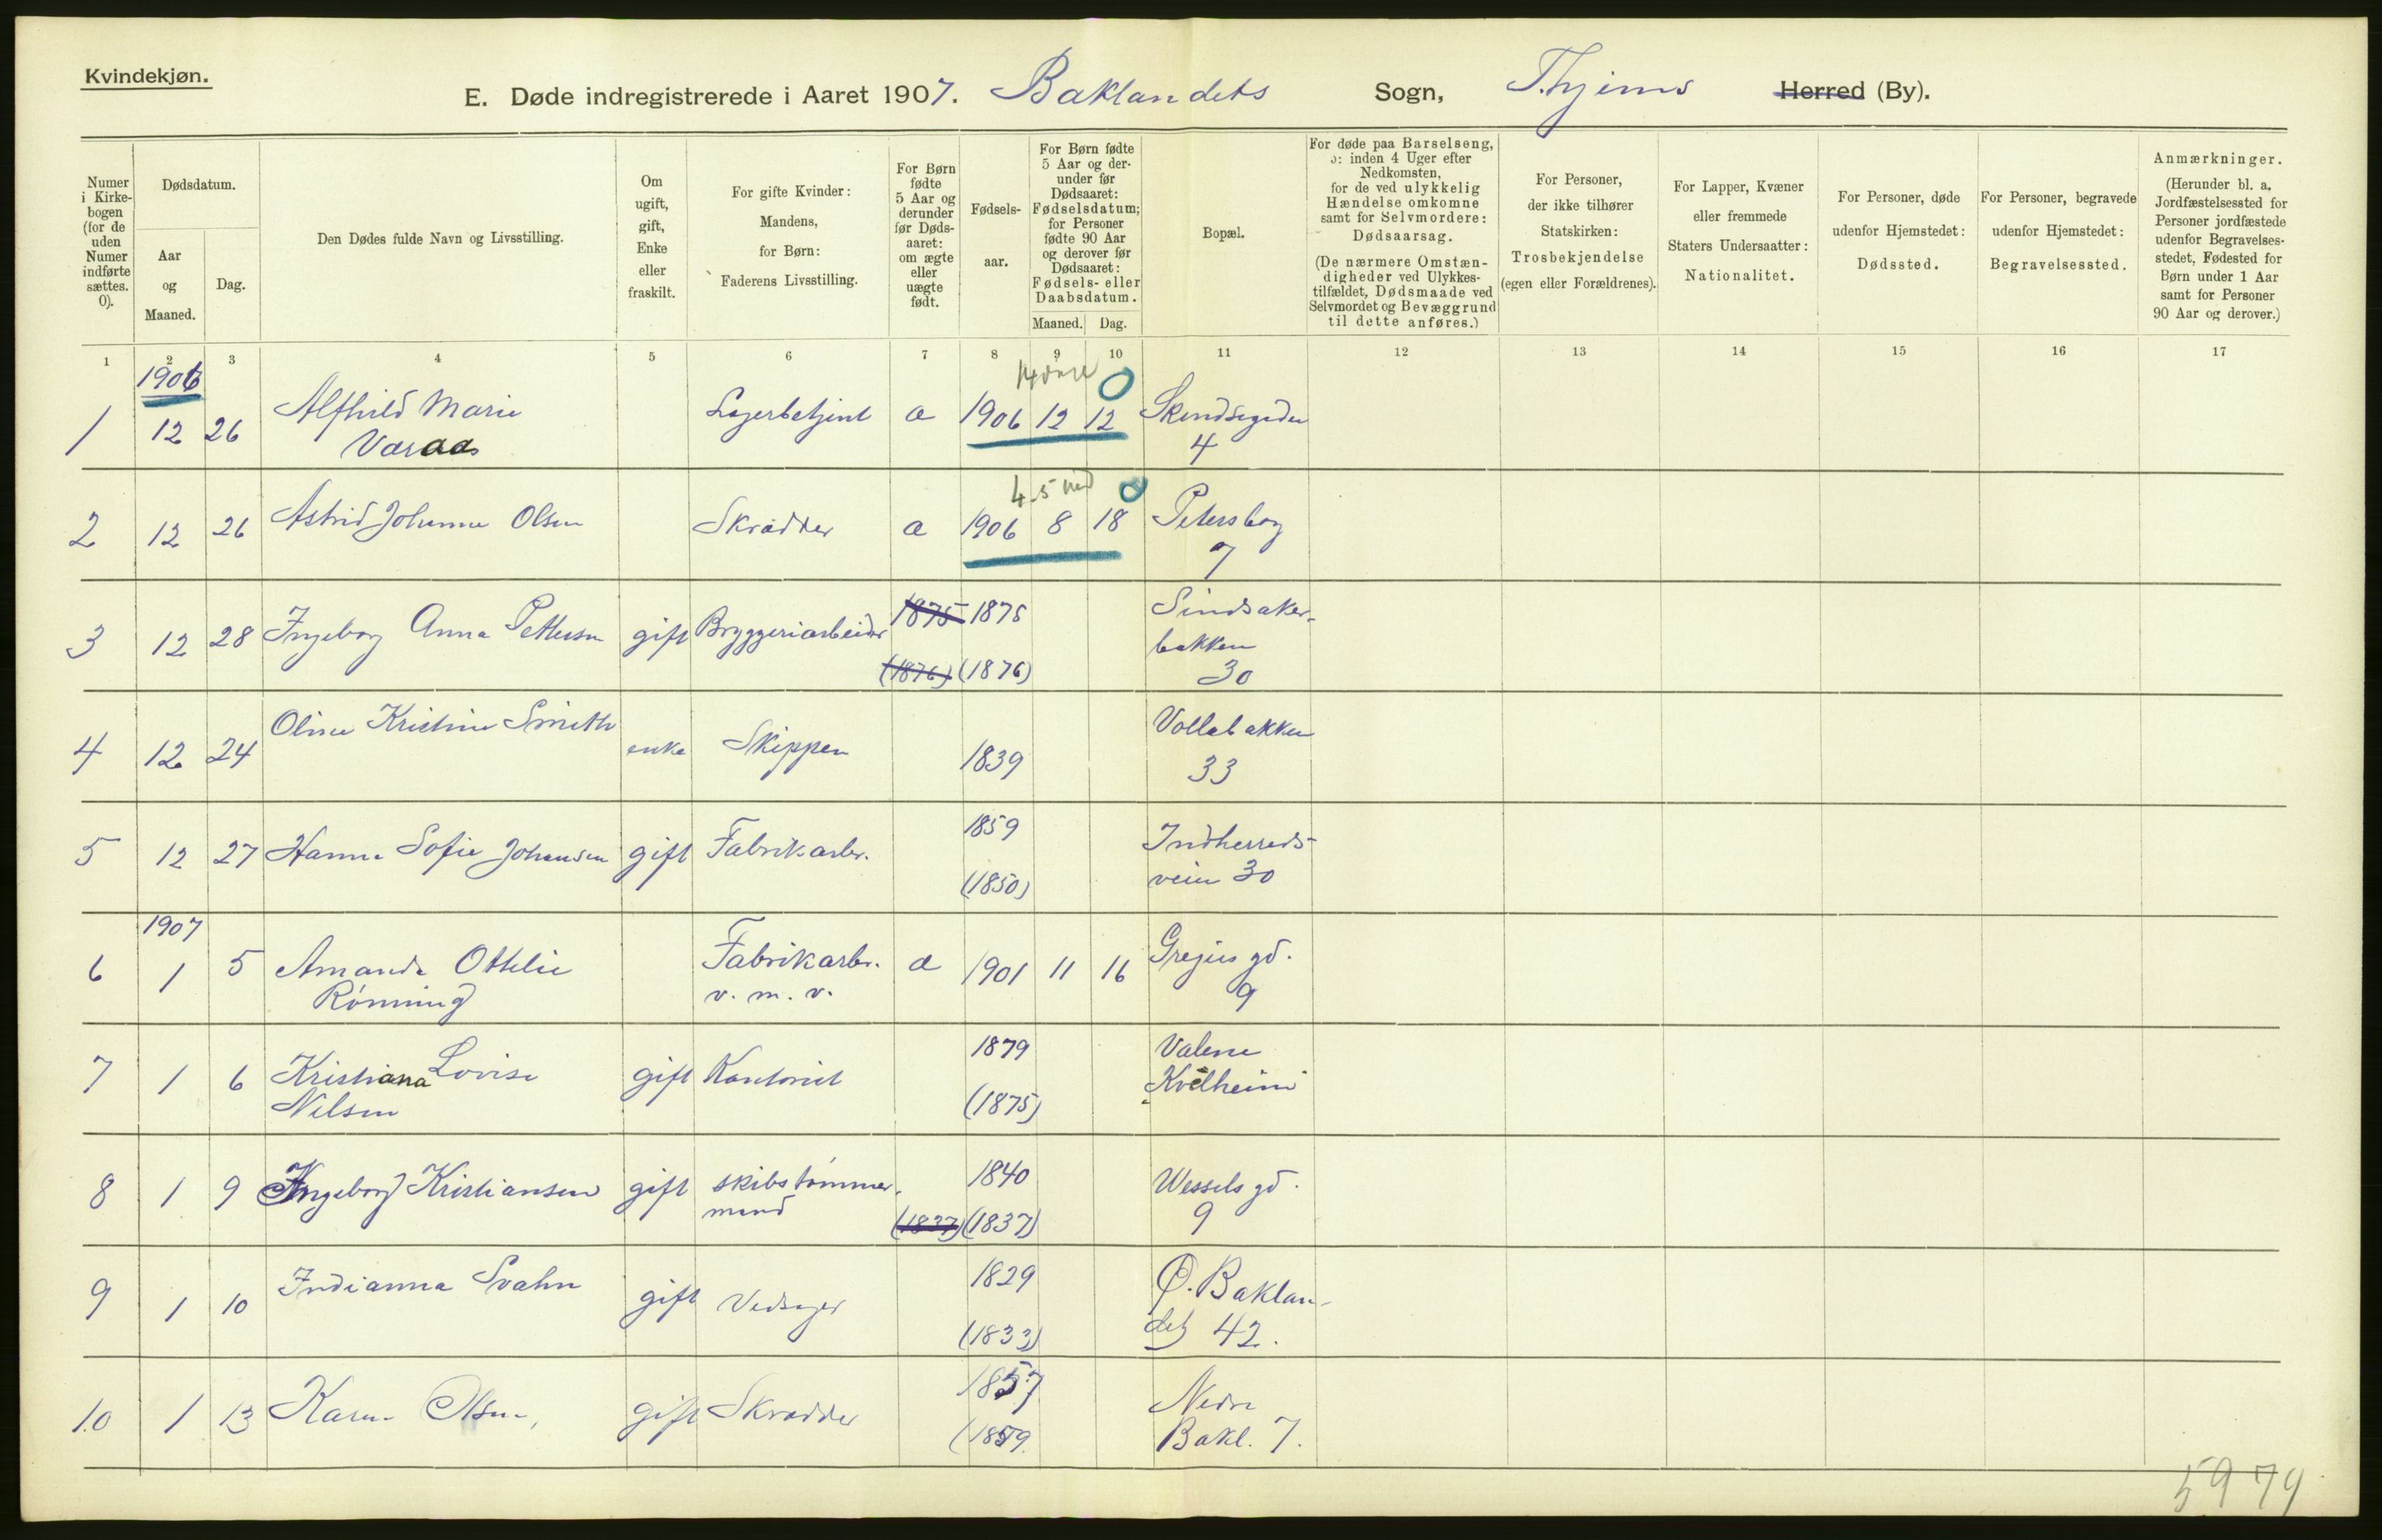 Kvindekjøn.
E. Døde indregistrerede i Aaret 1907. Baklandets Sogn, T.hjems Herred (By).
Numer i Kirkebogen (for de uden Numer indførte sættes. 0).
Dødsdatum.
Aar og Maaned.
Dag.
Den Dødes fulde Navn og Livsstilling.
Om ugift, gift, Enke eller fraskilt.
For gifte Kvinder: Mandens, for Børn: Faderens Livsstilling.
For Børn fødte 5 Aar og derunder før Dødsaaret: om ægte eller uægte født.
Fødselsaar.
For Børn fødte 5 Aar og derunder før Dødsaaret: Fødselsdatum; for Personer fødte 90 Aar og derover før Dødsaaret: Fødsels- eller Daabsdatum.
Maaned. Dag.
Bopæl.
For døde paa Barselseng, ɔ: inden 4 Uger efter Nedkomsten, for de ved ulykkelig Hændelse omkomne samt for Selvmordere: Dødsaarsag.
(De nærmere Omstændigheder ved Ulykkestilfældet, Dødsmaade ved Selvmordet og Bevæggrund til dette anføres.)
For Personer, der ikke tilhører Statskirken: Trosbekjendelse (egen eller Forældrenes).
For Lapper, Kvæner eller fremmede Staters Undersaatter: Nationalitet.
For Personer, døde udenfor Hjemstedet: Dødssted.
For Personer, begravede udenfor Hjemstedet: Begravelsessted.
Anmærkninger.
(Herunder bl. a. Jordfæstelsessted for Personer jordfæstede udenfor Begravelsesstedet, Fødested for Børn under 1 Aar samt for Personer 90 Aar og derover.)
1 2 3 4 5 6 7 8 9 10 11 12 13 14 15 16 17
1906
0
1 12 26 Alfhild Marie Lagerbetjent a 1906 12 12
4
4-5
0
2 12 26 Astrid Johanna Olsen Skrædder a 1906 8 18 Petersborg
7
3 12 28 Ingeborg Anna Pettersen gift Bryggeriarbeider 1875 1875 Sindsaker-
bakken
(1876) (1876) 30
4 12 24 Oline Kristine Smeth enke Skipper 1839 Vollabakken
33
5 12 27 Hanna Sofie Johansen gift Fabrikarb. 1859 Indherreds-
(1850) veien 30
1907
6 1 5 Amanda Ottelie Fabrikarb. a 1901 11 16 gd.
Rønning v. m. v. 9
7 1 6 Kristiana Lovise gift Kontorist 1879
Nilsen (1875)
8 1 9 Ingeborg Kristiansen gift skibstømmer- 1840 Wessels gd.
mand (1837) (1837) 9
9 1 10 Indianna Svahn gift Vedsager 1829 Ø. Baklan-
(1833) det 42.
10 1 13 Karen Olsen, gift Skrædder 1857 Nedre
(1859. Bakl. 7.
5979